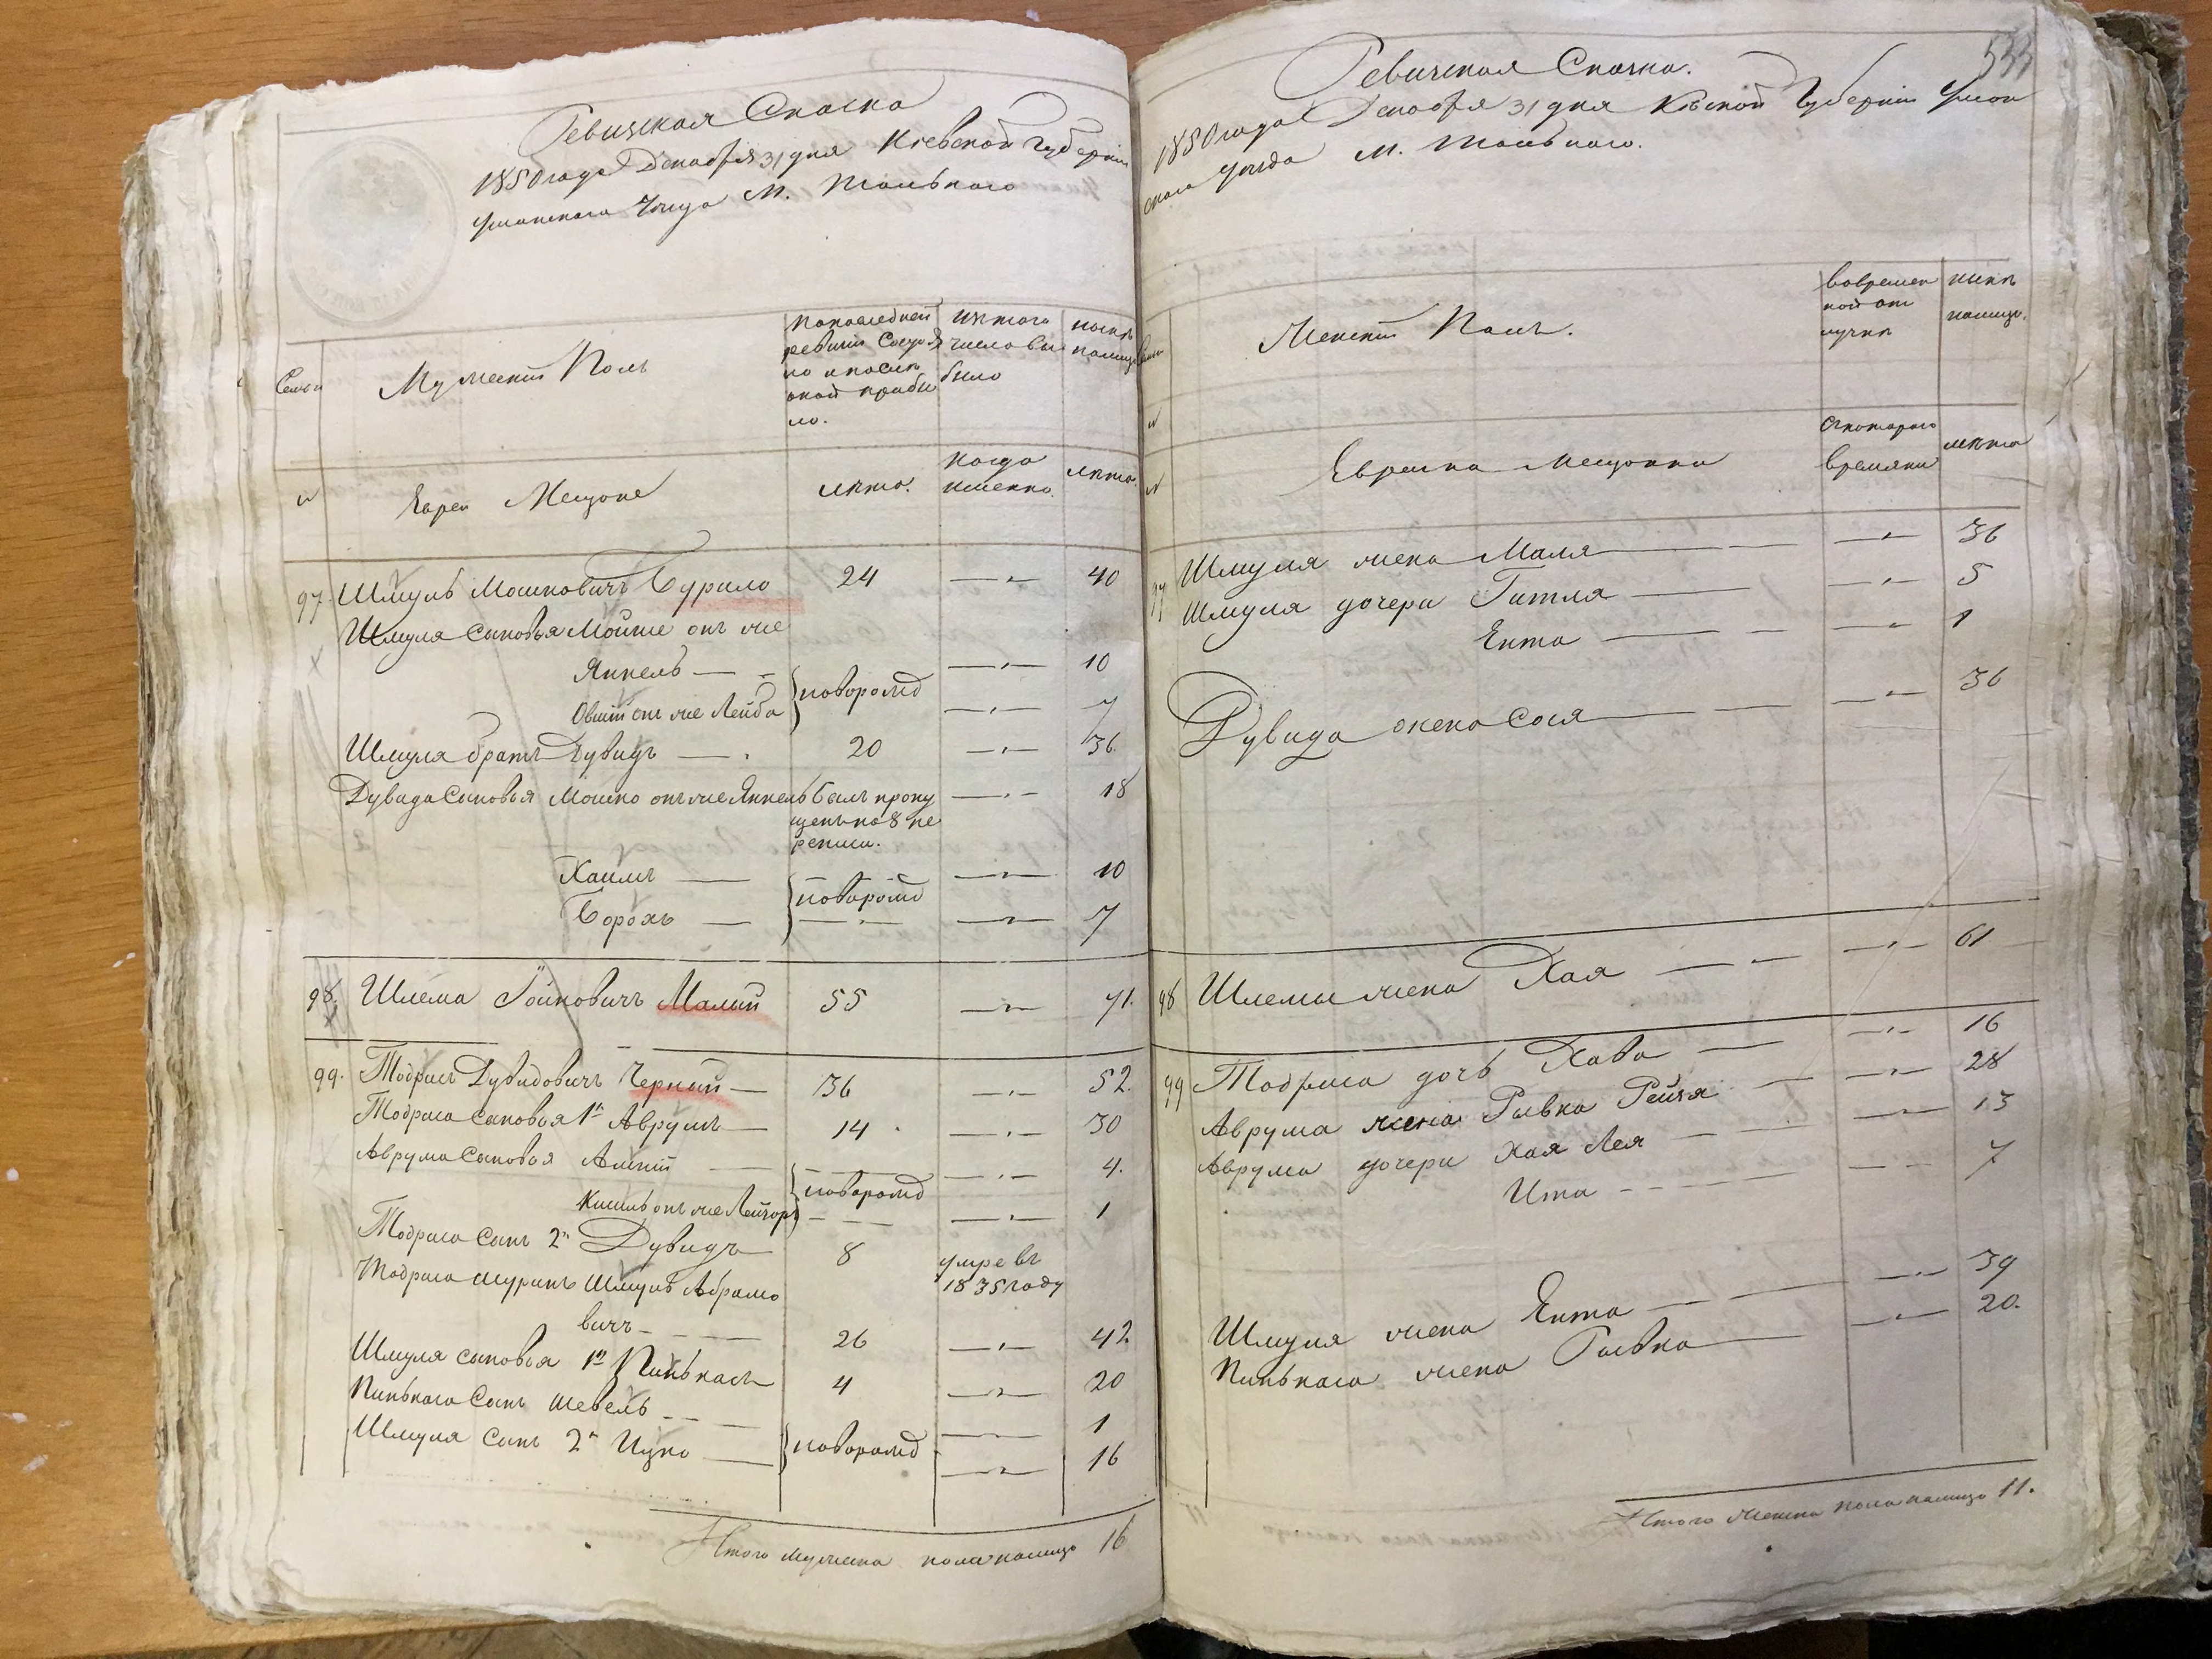 Ревизская Сказка
1850 года Декабря 31 дня Киевской Губернии
Уманского Уезда М. Тальнаго
Семьи
Мужеский Полъ
По последней
ревизии Состоя
ло и после
оной прибы
ло.
Изъ того
числа вы
было
Ныне
на лицо
№
Евреи Мещане
лета.
Когда
именно.
лета.
97. Шмуль Мошковичъ Бурило 24 — „ — 40
Шмуля Сыновья Мойше онъ же
Янкель — новорожд — „ — 10
Овший онъ же Лейба — „ — 7
Шмуля братъ Дувидъ — 20 — „ — 36.
Дувида Сыновья Мошко онъ же Янкель былъ пропу — „ — 18
щенъ по 8 пе
реписи.
Хаимъ — новорожд — „ — 10
Борохъ — — „ — — „ — 7
98. Шлема Іойновичъ Малый 55 — „ — 71.
99. Тодрисъ Дувидовичъ Черный — 36 — „ — 52.
Тодриса Сыновья 1й Аврумъ — 14 — „ — 30
Аврума Сыновья — новорожд — „ — 4.
Кисиль онъ же Лейзоръ — — — „ — 1
Тодриса Сынъ 2й Дувидъ 8 умре въ
1835 году
Тодриса шуринъ Шмуль Абрамо
вичъ — 26 — „ — 42.
Шмуля сыновья 1й Пинькасъ 4 — „ — 20
Пинькаса Сынъ Шевель — новорожд — „ — 1
Шмуля Сынъ 2й Ицко — — „ — 16
Итого мужеска пола налицо 16
533
Ревизская Сказка.
1850 года Декабря 31 дня Кіевской Губернии Уман
скаго Уезда М. Тальнаго.
Женский Полъ.
Вовремен
ной от
лучке
Ныне
налицо.
№
Еврейки Мещанки
С котораго
времяни
лета
97 Шмуля жена Маля — — „ — 36
Шмуля дочери Гитля — — „ — 5
Ента — — „ — 1
Дувида жена Сося — — „ — 36
98 Шлемы жена Хая — — „ — 61
99 Тодриса дочь Хава — — „ — 16
Аврума жена Рывка Рейзя — „ — 28
Аврума дочери Хая Лея — — „ — 13
Ита — — „ — 7
Шмуля жена Ента — — „ — 39
Пинькаса жена Рывка — — „ — 20.
Итого женска пола налицо 11.